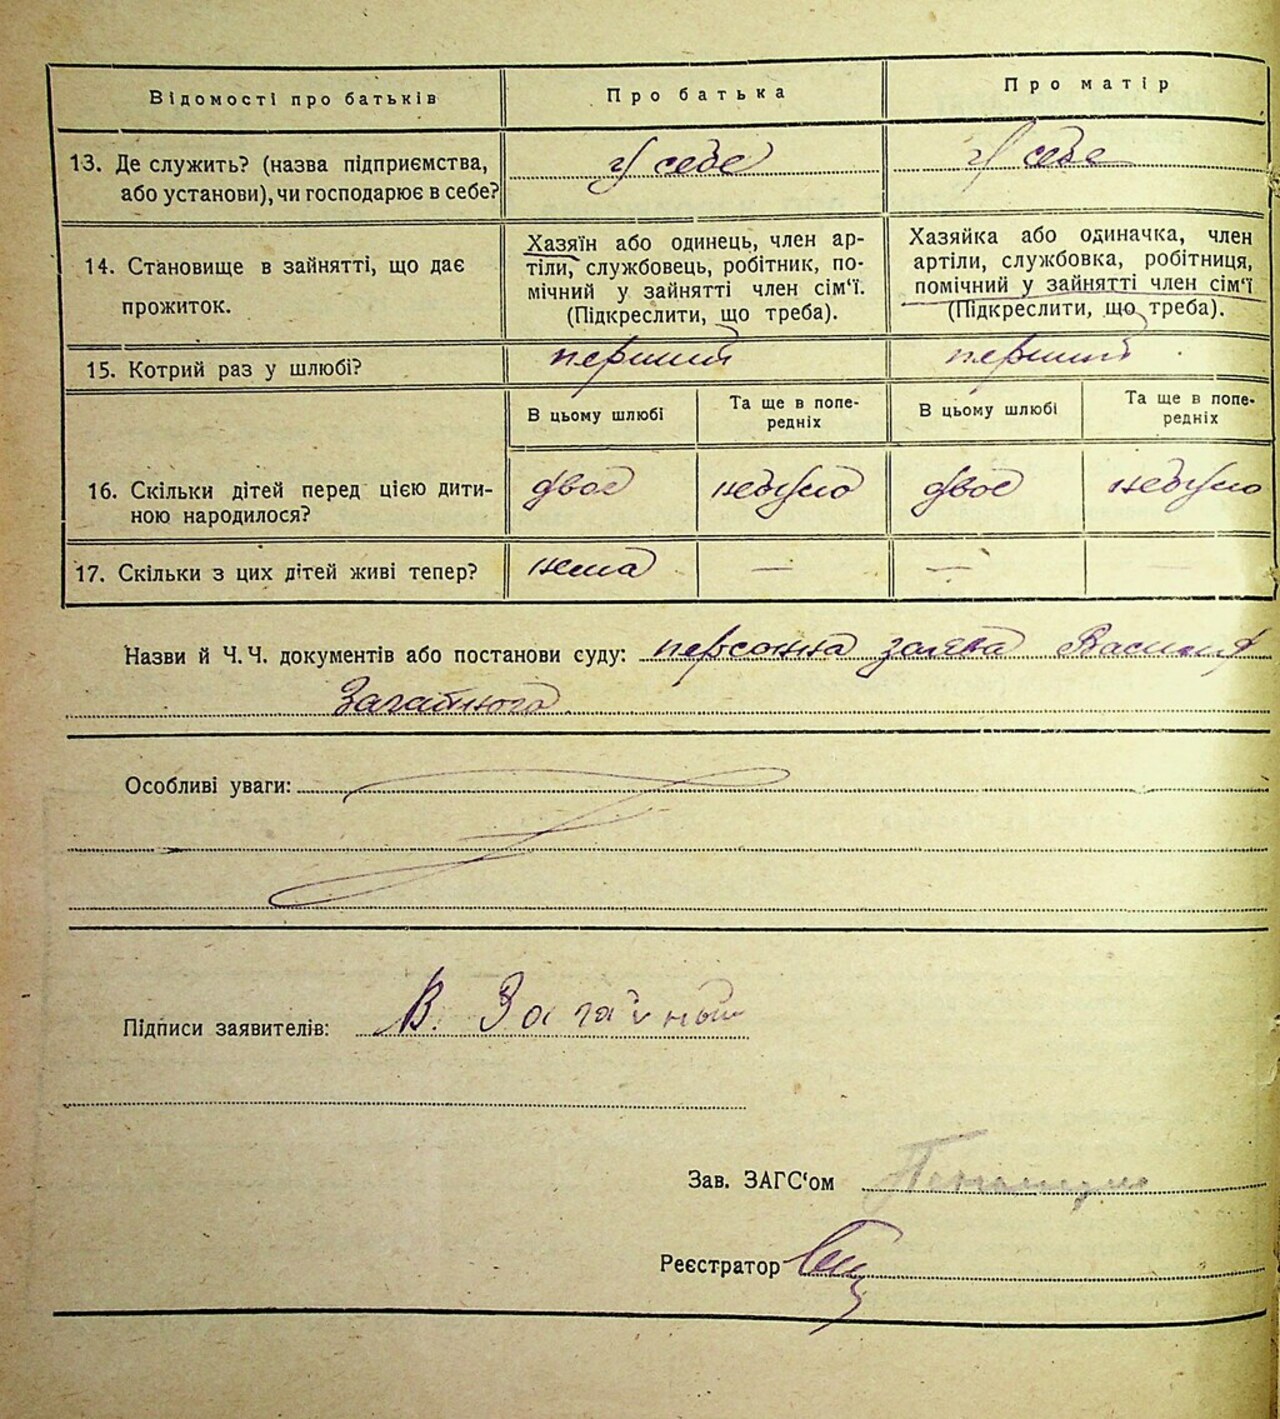 Відомості про батьків
Про батька
Про матір
13. Де служить? (назва підприємства,
або установи), чи господарює в себе?
у себе
у себе
14. Становище в зайнятті, що дає
прожиток.
Хазяїн або одинець, член ар-
тіли, службовець, робітник, по-
мічний у зайнятті член сім‘ї.
(Підкреслити, що треба).
Хазяйка або одиначка, член
артіли, службовка, робітниця,
помічний у зайнятті член сім‘ї
(Підкреслити, що треба).
15. Котрий раз у шлюбі?
перший
перший
В цьому шлюбі
Та ще в попе-
редніх
В цьому шлюбі
Та ще в попе-
редніх
16. Скільки дітей перед цією дити-
ною народилося?
двоє
небуло
двоє
небуло
17. Скільки з цих дітей живі тепер?
нема — —
Назви й Ч.Ч. документів або постанови суду: персонна заява Василя
Загайного
Особливі уваги:
Підписи заявителів: В. Загайной
Зав. ЗАГС‘ом
Реєстратор